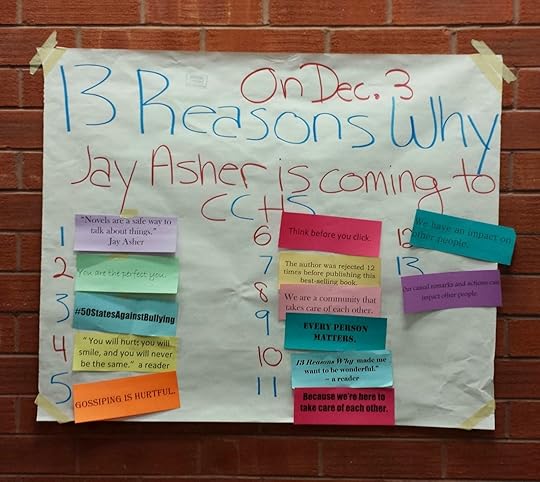 On Dec. 3
13 Reasons Why
Jay Asher is coming to
CCHS
1
"Novels are a safe way to
talk about things."
Jay Asher
2
You are the perfect you.
3
#50StatesAgainstBullying
4
"You will hurt, you will
smile, and you will never
be the same." a reader
5
GOSSIPING IS HURTFUL.
6
Think before you click.
7
The author was rejected 12
times before publishing this
best-selling book.
8
We are a community that
takes care of each other.
9
EVERY PERSON
MATTERS.
10
13 Reasons Why made me
want to be wonderful."
– a reader
11
Because we're here to
take care of each other.
12
We have an impact on
other people.
13
Our casual remarks and actions can
impact other people.